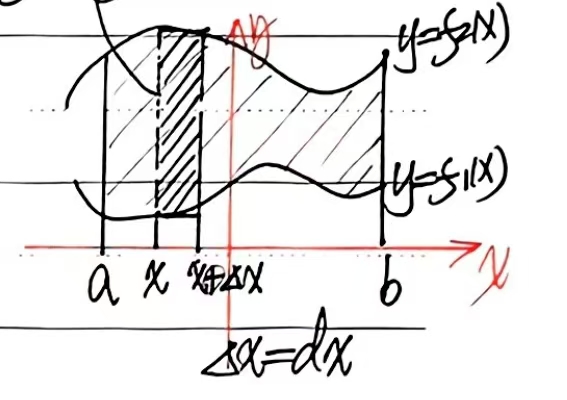 y
y=f2(x)
y=f1(x)
a x x+Δx b x
Δx=dx